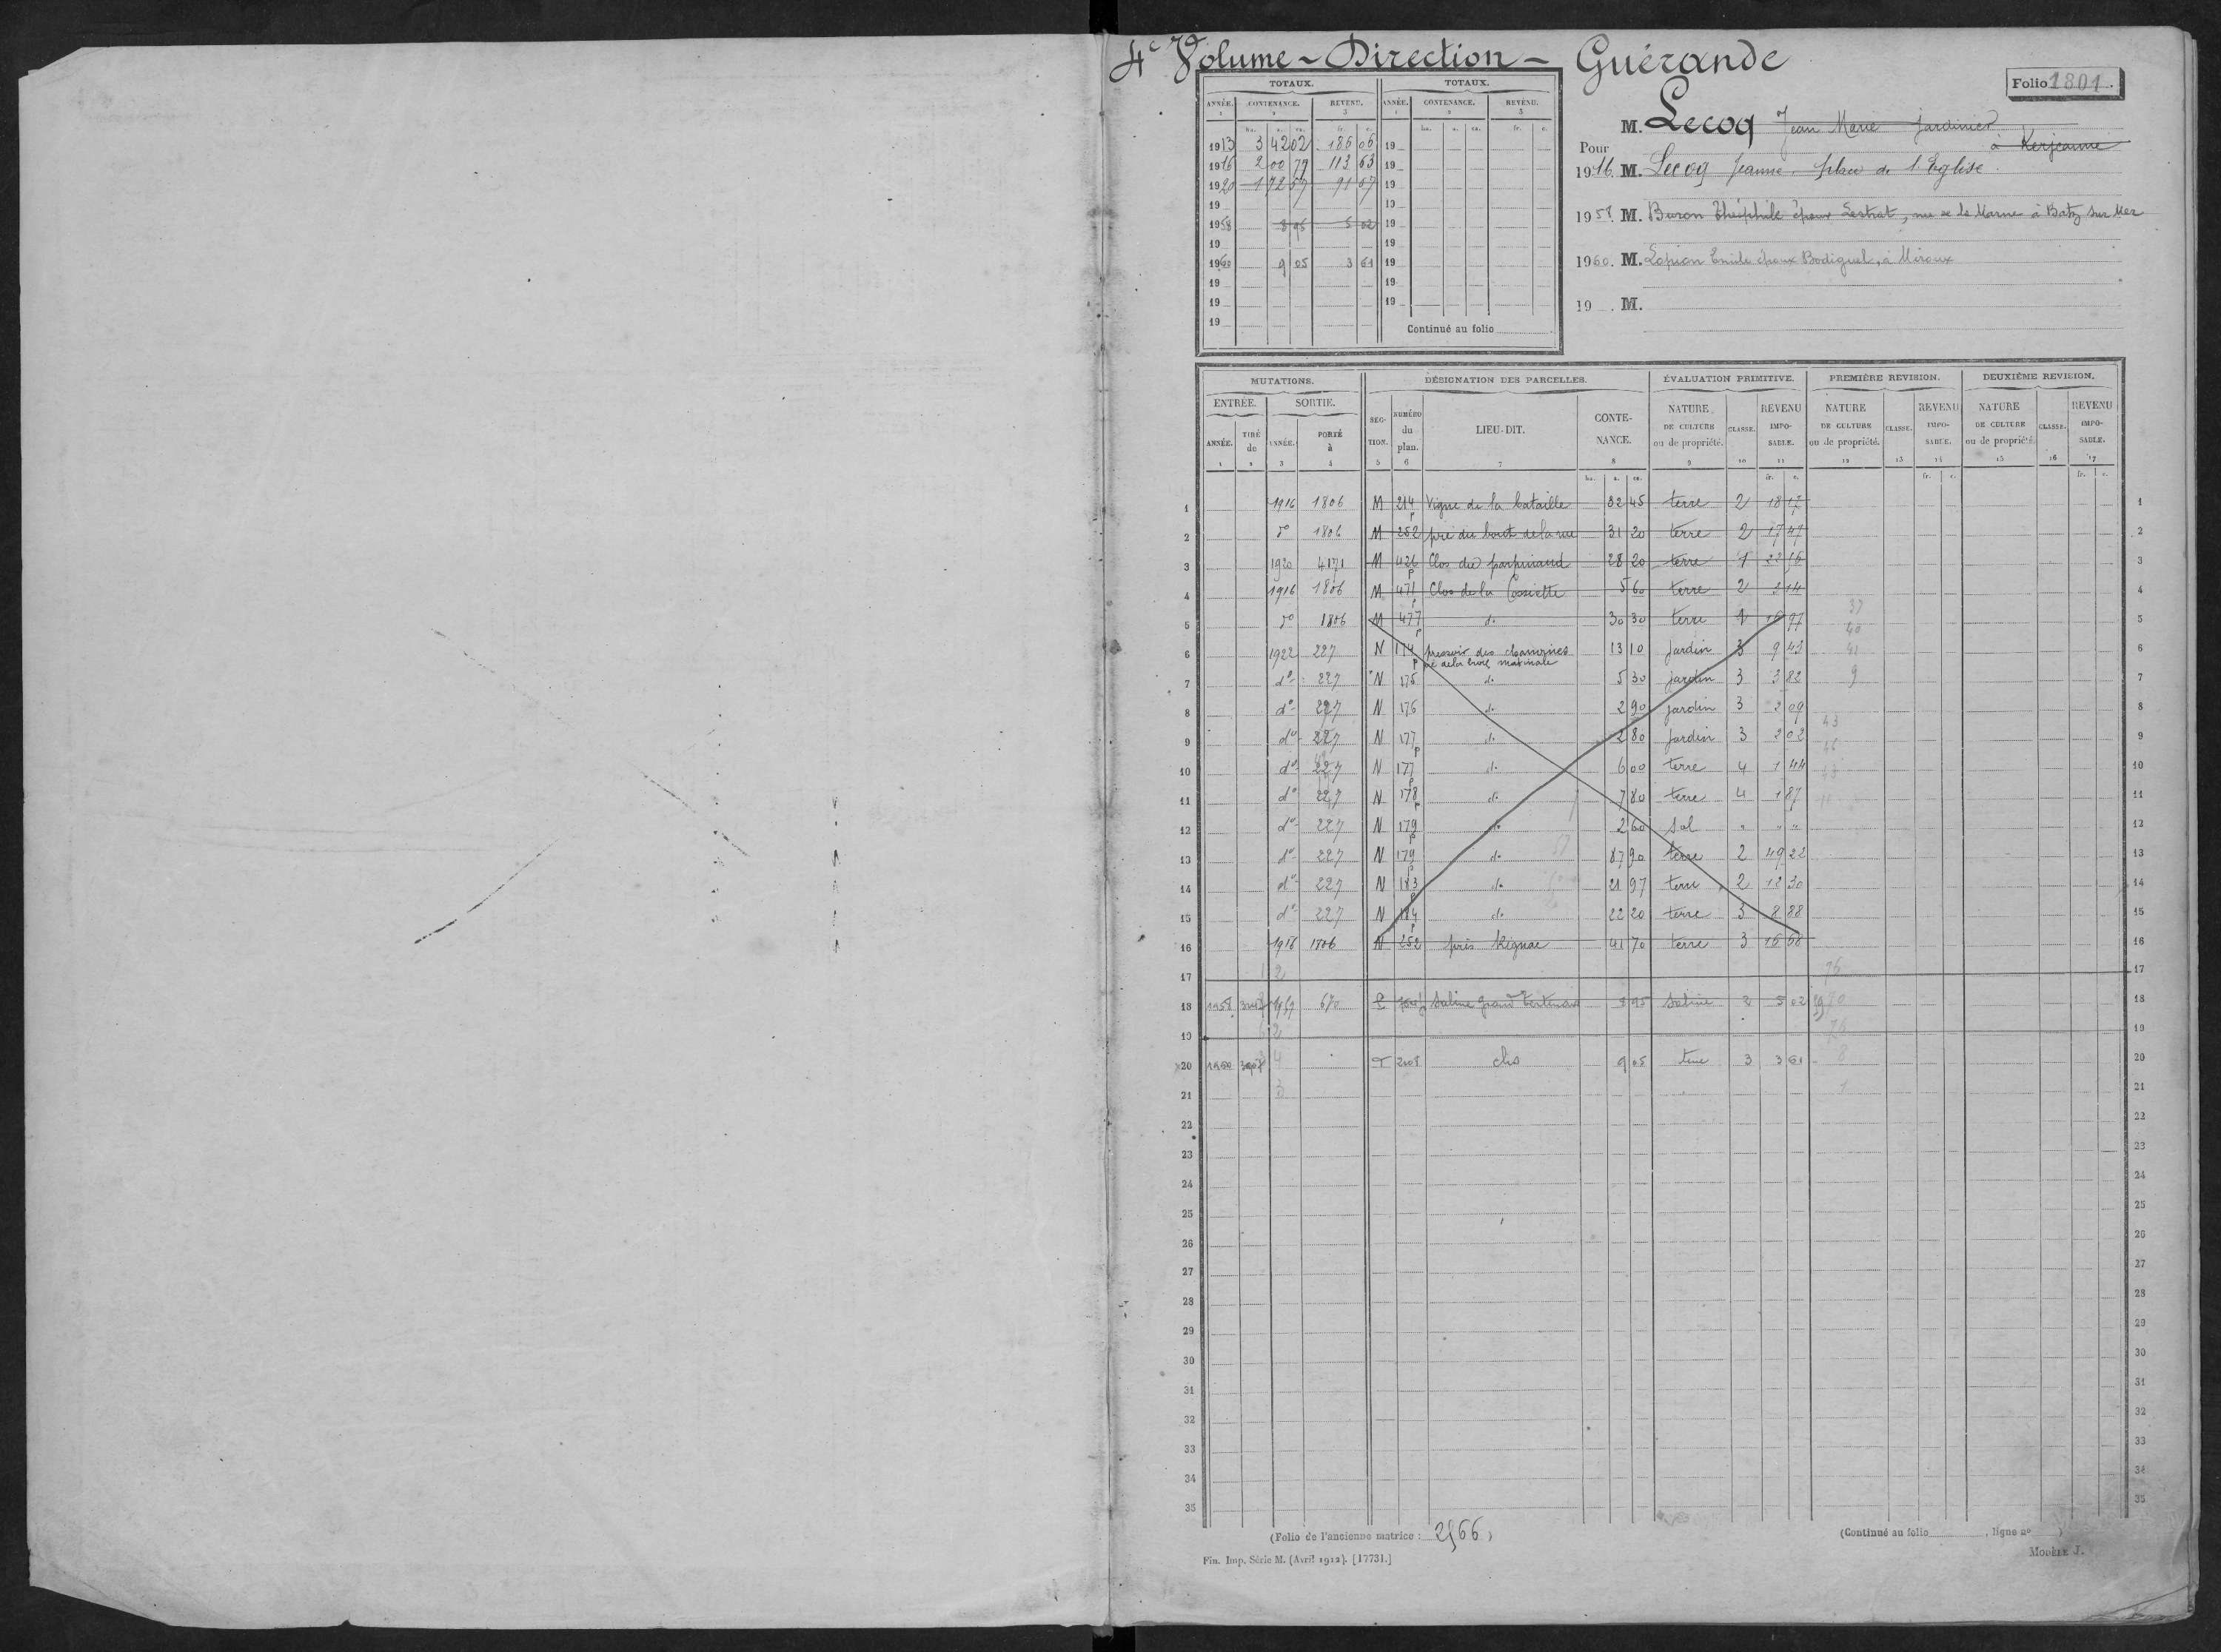 4e Volume - Direction - Guérande
Folio 1801.
TOTAUX. TOTAUX.
ANNÉE. CONTENANCE. REVENU. ANNÉE. CONTENANCE. REVENU.
ha. a. ca. fr. c. ha. a. ca. fr. c.
1913 3 42 02 186 06 19
1916 2 00 77 113 63 19
1920 1 72 57 91 07 19
19 19
1958 8 95 5 02 19
19 19
1960 9 05 3 61 19
19 19
19 19
19 Continué au folio
M. Lecoq Jean Marie Jardinier
Pour à Kerjeanne
1916. M. Lecoq Jeanne, place de l'Eglise
1958 M. Buron Théophile époux Lestrat, rue de la Marne à Batz sur Mer
1960. M. Lopion Emile époux Bodiguel, à Miroux
19 . M.
MUTATIONS. DÉSIGNATION DES PARCELLES. ÉVALUATION PRIMITIVE. PREMIÈRE REVISION. DEUXIÈME REVISION.
ENTRÉE. SORTIE.
ANNÉE. TIRÉ de ANNÉE. PORTÉ à SECTION. NUMÉRO du plan. LIEU-DIT. CONTENANCE. NATURE DE CULTURE ou de propriété. CLASSE. REVENU IMPOSABLE. NATURE DE CULTURE ou de propriété. CLASSE. REVENU IMPOSABLE. NATURE DE CULTURE ou de propriété. CLASSE. REVENU IMPOSABLE.
1 2 3 4 5 6 7 8 9 10 11 12 13 14 15 16 17
ha. a. ca. fr. c. fr. c. fr. c.
1 1916 1806 M 214 p Vigne de la bataille 32 45 terre 2 18 17 1
2 do 1806 M 252 pré du bout de la rue 31 20 terre 2 17 47 2
3 1920 4171 M 426 p Clos du 28 20 terre 1 22 56 3
4 1916 1806 M 471 p Clos de la Cassiette 5 60 terre 2 3 14 4
5 do 1806 M 477 p do 30 30 terre 2 16 97 5
6 1922 227 N 174 p pressoir des chanoines 13 10 jardin 3 9 43 6
7 do 227 N 175 do 5 30 jardin 3 3 82 7
8 do 227 N 176 do 2 90 jardin 3 2 09 8
9 do 227 N 177 p do 2 80 jardin 3 2 02 9
10 do 227 N 177 p do 6 00 terre 4 1 44 10
11 do 227 N 178 p do 7 80 terre 4 1 87 11
12 do 227 N 179 p do 2 60 sol " " " 12
13 do 227 N 179 p do 87 90 terre 2 49 22 13
14 do 227 N 183 p do 21 97 terre 2 12 30 14
15 do 227 N 184 p do 22 20 terre 3 8 88 15
16 1916 1806 N 252 près Kignac 41 70 terre 3 16 68 16
17 17
18 1958 1959 670 Saline Grand 8 95 saline 2 5 02 18
19 19
20 1960 2108 clos 9 05 terre 3 3 61 20
21 21
22 22
23 23
24 24
25 25
26 26
27 27
28 28
29 29
30 30
31 31
32 32
33 33
34 34
35 35
(Folio de l'ancienne matrice : 2566)
(Continué au folio , ligne no )
Fin. Imp. Série M. (Avril 1912). [17731.]
MODÈLE J.